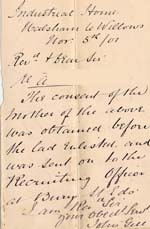 Industrial Home
Walsham le Willows
Nov 5th /01
Revd & Dear Sir
The consent of the
Mother of the above
was obtained before
the lad Enlisted, and
was sent on to the
Recruiting Officer
at Bury St Eds
I am Rev Sir
your obedt Servt
John Gee